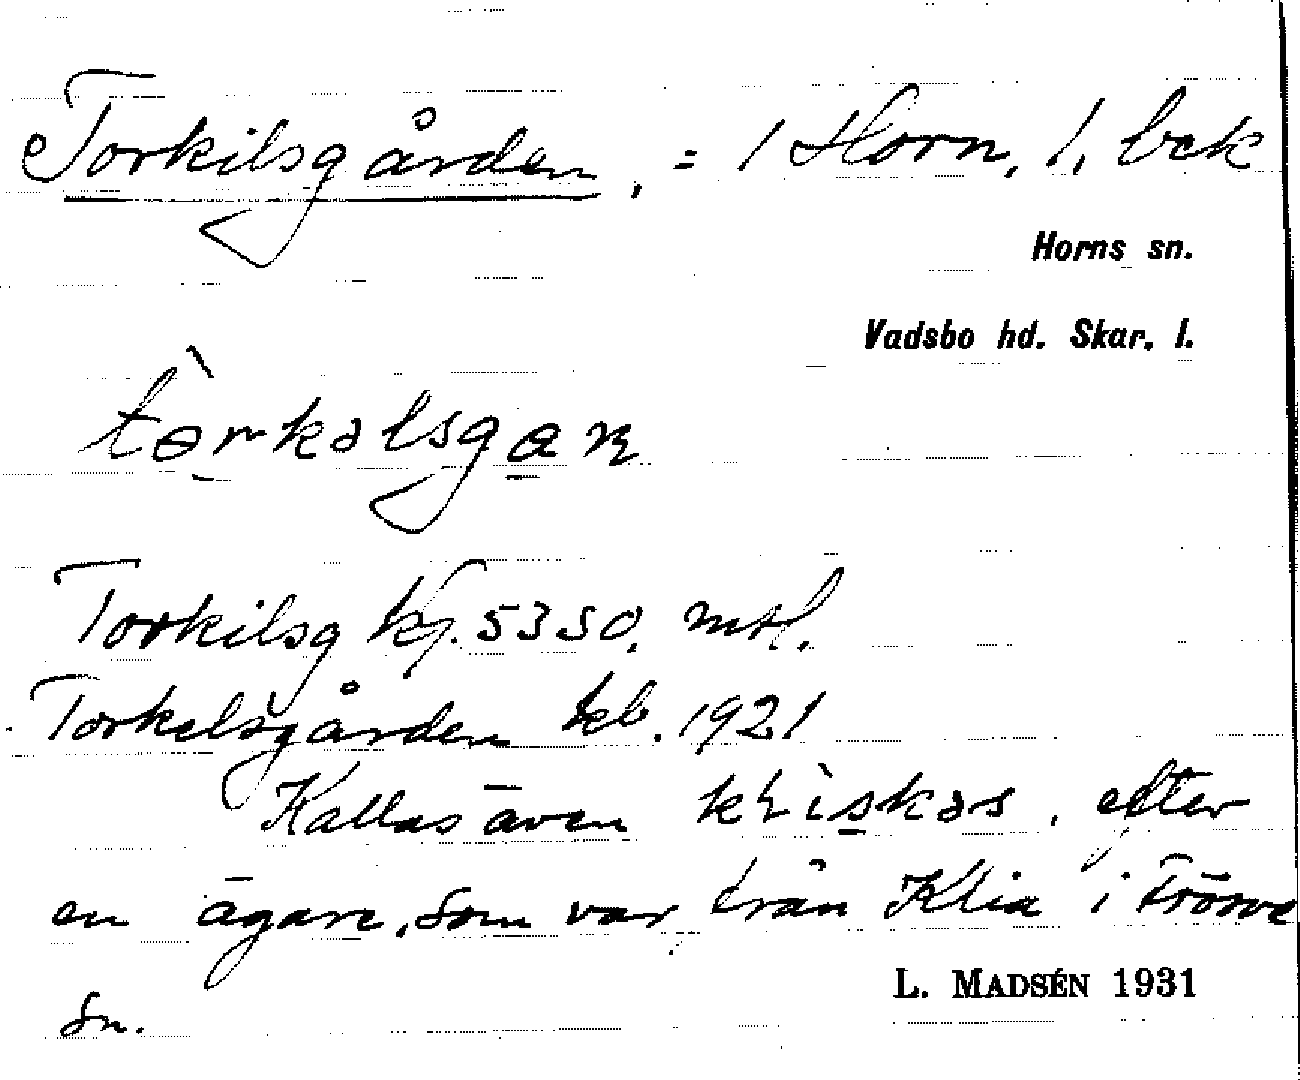 Torkilsgården, = 1 Horn, 1, bek
Horns sn.
Vadsbo hd. Skar. l.
tòrkəlsgaɳ
Torkilsg kp. 5350, mtl.
Torkelsgården kb. 1921
Kallas även klìskəs, efter
en ägare, som var från Klia i
sn.
L. MADSÉN 1931